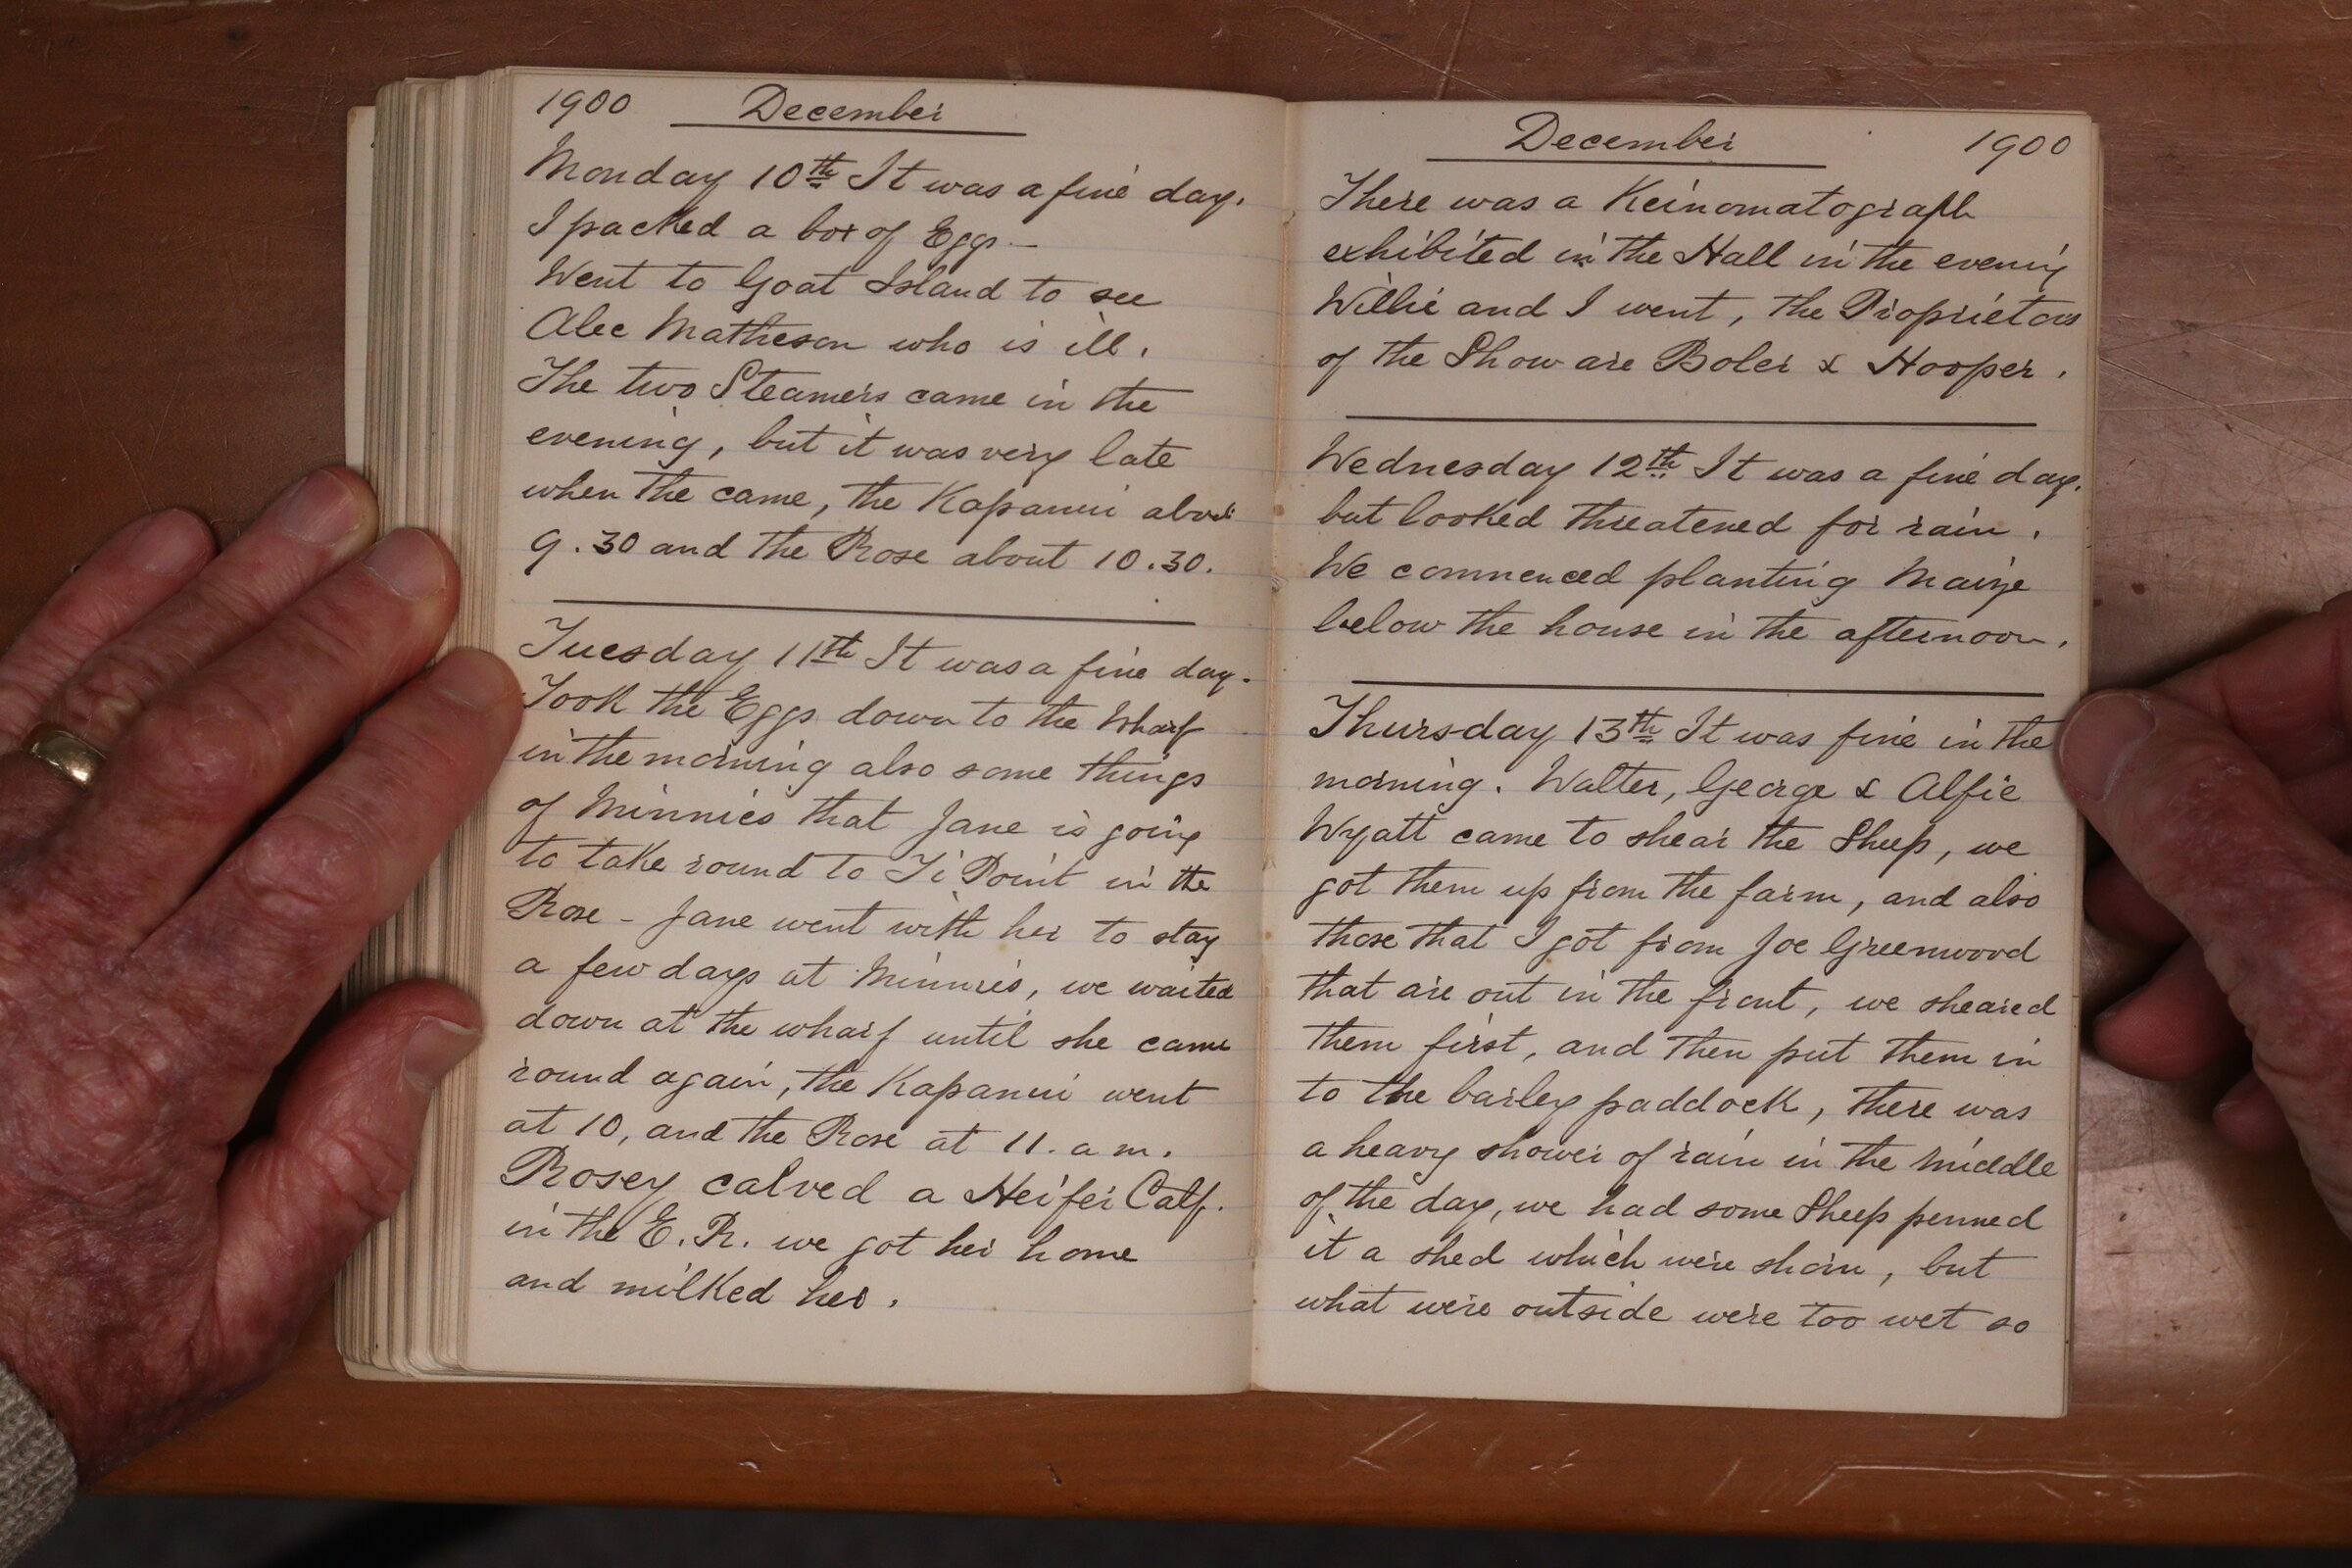 1900 December
Monday 10th It was a fine day.
I packed a box of Eggs —
Went to Goat Island to see
Alec Matheson who is ill.
The two Steamers came in the
evening, but it was very late
when the came, the Kapanui about
9.30 and the Rose about 10.30.
Tuesday 11th It was a fine day.
Took the Eggs down to the Wharf
in the morning also some things
of Minnies that Jane is going
to take round to Ti Point in the
Rose - Jane went with her to stay
a few days at Minnies, we waited
down at the wharf until she came
round again, the Kapanui went
at 10, and the Rose at 11. a m.
Rosey calved a Heifer Calf.
in the E. R. we got her home
and milked her.
December 1900
There was a Keinomatograph
exhibited in the Hall in the evening
Willie and I went, the Proprietors
of the Show are Boler & Hooper.
Wednesday 12th It was a fine day.
but looked threatened for rain.
We commenced planting Maize
below the house in the afternoon.
Thursday 13th It was fine in the
morning. Walter, George & Alfie
Wyatt came to shear the Sheep, we
got them up from the farm, and also
those that I got from Joe Greenwood
that are out in the front, we sheared
them first, and then put them in
to the barley paddock, there was
a heavy shower of rain in the middle
of the day, we had some Sheep penned
it a shed which were shorn, but
what were outside were too wet so